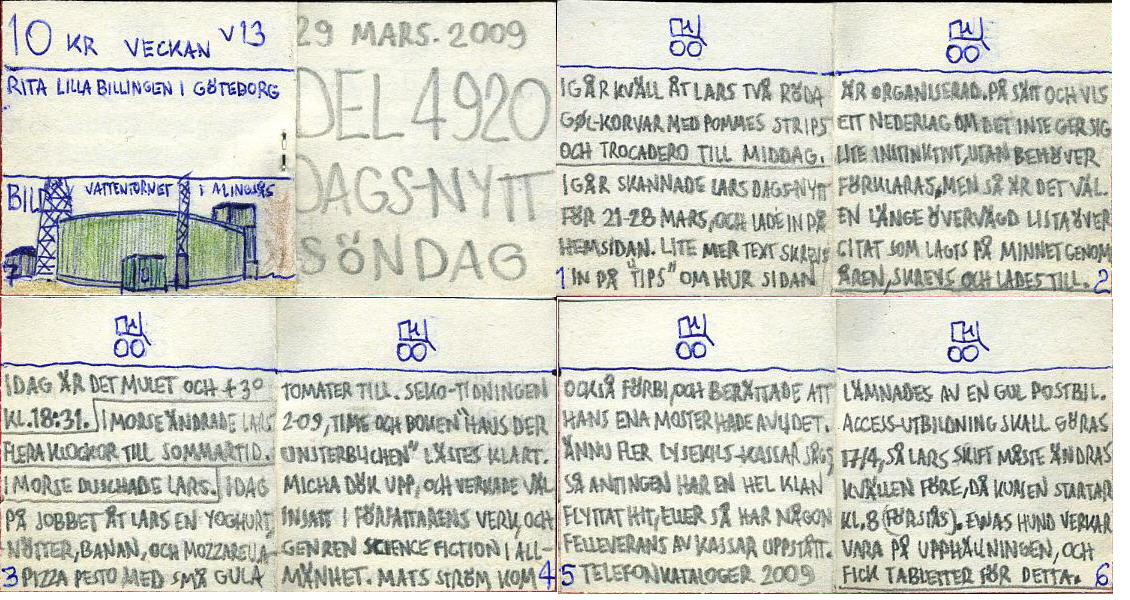 10 KR VECKAN V13
RITA LILLA BILLINGEN I GÖTEBORG
BILD VATTENTORNET I ALINGSÅS
7
29 MARS. 2009
DEL 4920
DAGS-NYTT
SÖNDAG
IGÅR KVÄLL ÅT LARS TVÅ RÖDA
GØL-KORVAR MED POMMES STRIPS
OCH TROCADERO TILL MIDDAG.
IGÅR SKANNADE LARS DAGS-NYTT
FÖR 21-28 MARS, OCH LADE IN PÅ
HEMSIDAN. LITE MER TEXT SKREVS
1 IN PÅ "TIPS" OM HUR SIDAN
ÄR ORGANISERAD. PÅ SÄTT OCH VIS
ETT NEDERLAG OM DET INTE GER SIG
LITE INITINKTNT, UTAN BEHÖVER
FÖRKLARAS, MEN SÅ ÄR DET VÄL.
EN LÄNGE ÖVERVÄGD LISTA ÖVER
CITAT SOM LAGTS PÅ MINNET GENOM
ÅREN, SKREVS OCH LADES TILL. 2
IDAG ÄR DET MULET OCH +3°
KL.18:31. I MORSE ÄNDRADE LARS
FLERA KLOCKOR TILL SOMMARTID.
I MORSE DUSCHADE LARS. IDAG
PÅ JOBBET ÅT LARS EN YOGHURT,
NÖTTER, BANAN, OCH MOZZARELLA-
3 PIZZA PESTO MED SMÅ GULA
TOMATER TILL. SEKO-TIDNINGEN
2-09, TIME OCH BOKEN "HAUS DER
UNSTERBLICHEN" LÄSTES KLART.
MICHA DÖK UPP, OCH VERKADE VÄL
INSATT I FÖRFATTARENS VERK, OCH
GENREN SCIENCE FICTION I ALL-
MÄNHET. MATS STRÖM KOM 4
OCKSÅ FÖRBI, OCH BERÄTTADE ATT
HANS ENA MOSTER HADE AVLIDET.
ÄNNU FLER LYSEKILS-KASSAR SÅGS,
SÅ ANTINGEN HAR EN HEL KLAN
FLYTTAT HIT, ELLER SÅ HAR NÅGON
FELLEVERANS AV KASSAR UPPSTÅTT.
5 TELEFONKATALOGER 2009
LÄMNADES AV EN GUL POSTBIL.
ACCESS-UTBILDNING SKALL GÖRAS
17/4, SÅ LARS SKIFT MÅSTE ÄNDRAS
KVÄLLEN FÖRE, DÅ KURSEN STARTAR
KL.8 (FÖRSTÅS). EWAS HUND VERKAR
VARA PÅ UPPHÄLNINGEN, OCH
FICK TABLETTER FÖR DETTA. 6